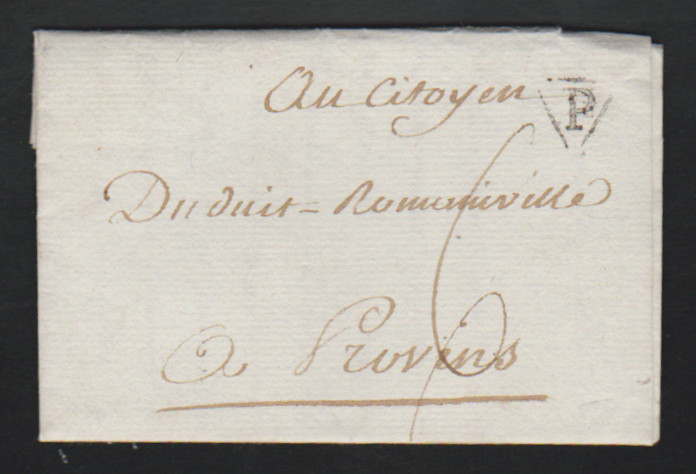 Au Citoyen P
Duduit = Romainville
6
a Provins